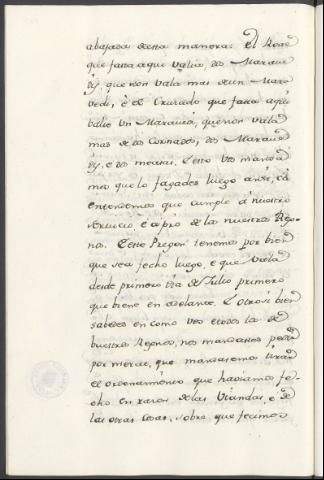 abajada dessa manera: el Real
que fasta aqui valia dos Maraue
dis, que non vala mas de un Mara
vedi, è el Cruzado que fasta aqui
balio un Maravedi, que non vala
mas de dos Cornados, dos Maraue
dis, è dos meajas. E esto vos manda
mos que lo fagades luego ansi, cà
entendemos que cumple à nuestro
servicio, è à pro de los nuestros Regn
nos. E este Pregon tenemos por bien
que sea fecho luego, è que vala
desde primero dia de Julio primero
que biene en adelante. E otrosi bien
sabedes en como vos è todos los de
nuestros Regnos, nos embiastes pedir
por merced, que mandasemos tirar
el ordenamiento que haviamos fe-
cho en razon de las Viandas, è de
las otras cosas, sobre que fecimos